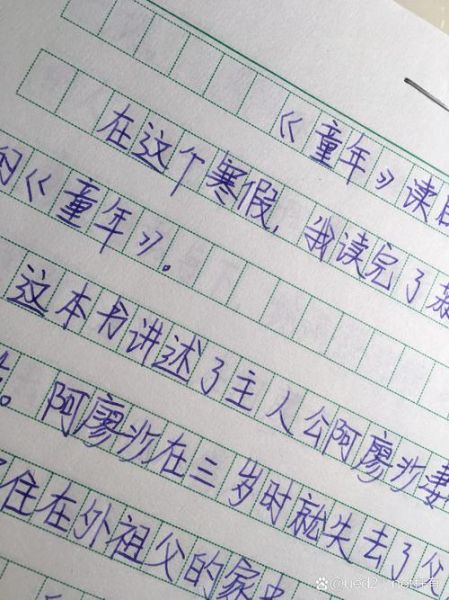 《童年》读
在这个寒假，我读完了
的《童年》。
这本书讲述了主人公阿廖沙
。阿廖沙在三岁时就失去了父
住在外祖父的家